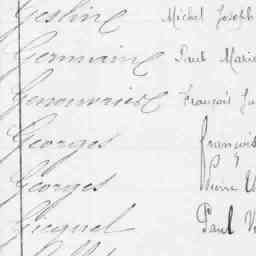 Geslin Michel Joseph
Germaine Paul Marie
François
Georges François
Georges Pierre
Gicquel Paul